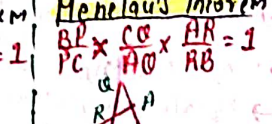 EM
Menelaus Theorem
= 1 BP/PC × CQ/AQ × AR/RB = 1
Q
R A